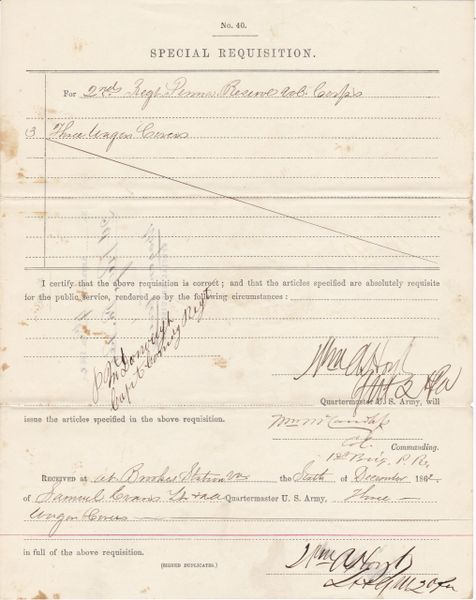 No. 40.
SPECIAL REQUISITION.
For 2nd Regt Penna Reserve Vol. Corps
(3 Three Wagon Covers
I certify that the above requisition is correct; and that the articles specified are absolutely requisite
for the public service, rendered so by the following circumstances:
P McDonough
Capt Comdg Regt
Quartermaster U. S. Army, will
issue the articles specified in the above requisition.
Wm McCandless
Col. Commanding.
1st Brig. P. R.
RECEIVED at Brookes Station Va the Sixth of December 1862
of Samuel Evans Lt Quartermaster U. S. Army, Three
Wagon Covers
in full of the above requisition.
(SIGNED DUPLICATES.)